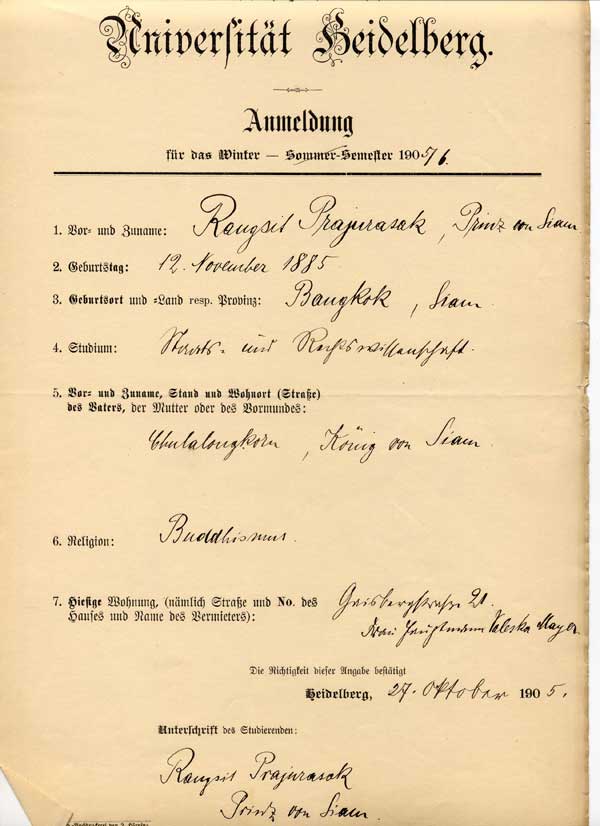 Universität Heidelberg.
Anmeldung
für das Winter — Sommer-Semester 1905/6.
1. Vor- und Zuname: Rangsit Prajurasak, Prinz von Siam
2. Geburtstag: 12. November 1885
3. Geburtsort und -Land resp. Provinz: Bangkok, Siam
4. Studium: Staats- und Rechtswissenschaft.
5. Vor- und Zuname, Stand und Wohnort (Straße)
des Vaters, der Mutter oder des Vormundes:
Chulalongkorn, König von Siam
6. Religion: Buddhismus.
7. Hiesige Wohnung, (nämlich Straße und No. des Gaisbergstraße 21
Hauses und Name des Vermieters): Frau Hauptmann Valeska Mayer.
Die Richtigkeit dieser Angabe bestätigt
Heidelberg, 27. Oktober 1905.
Unterschrift des Studierenden:
Rangsit Prajurasak
Prinz von Siam